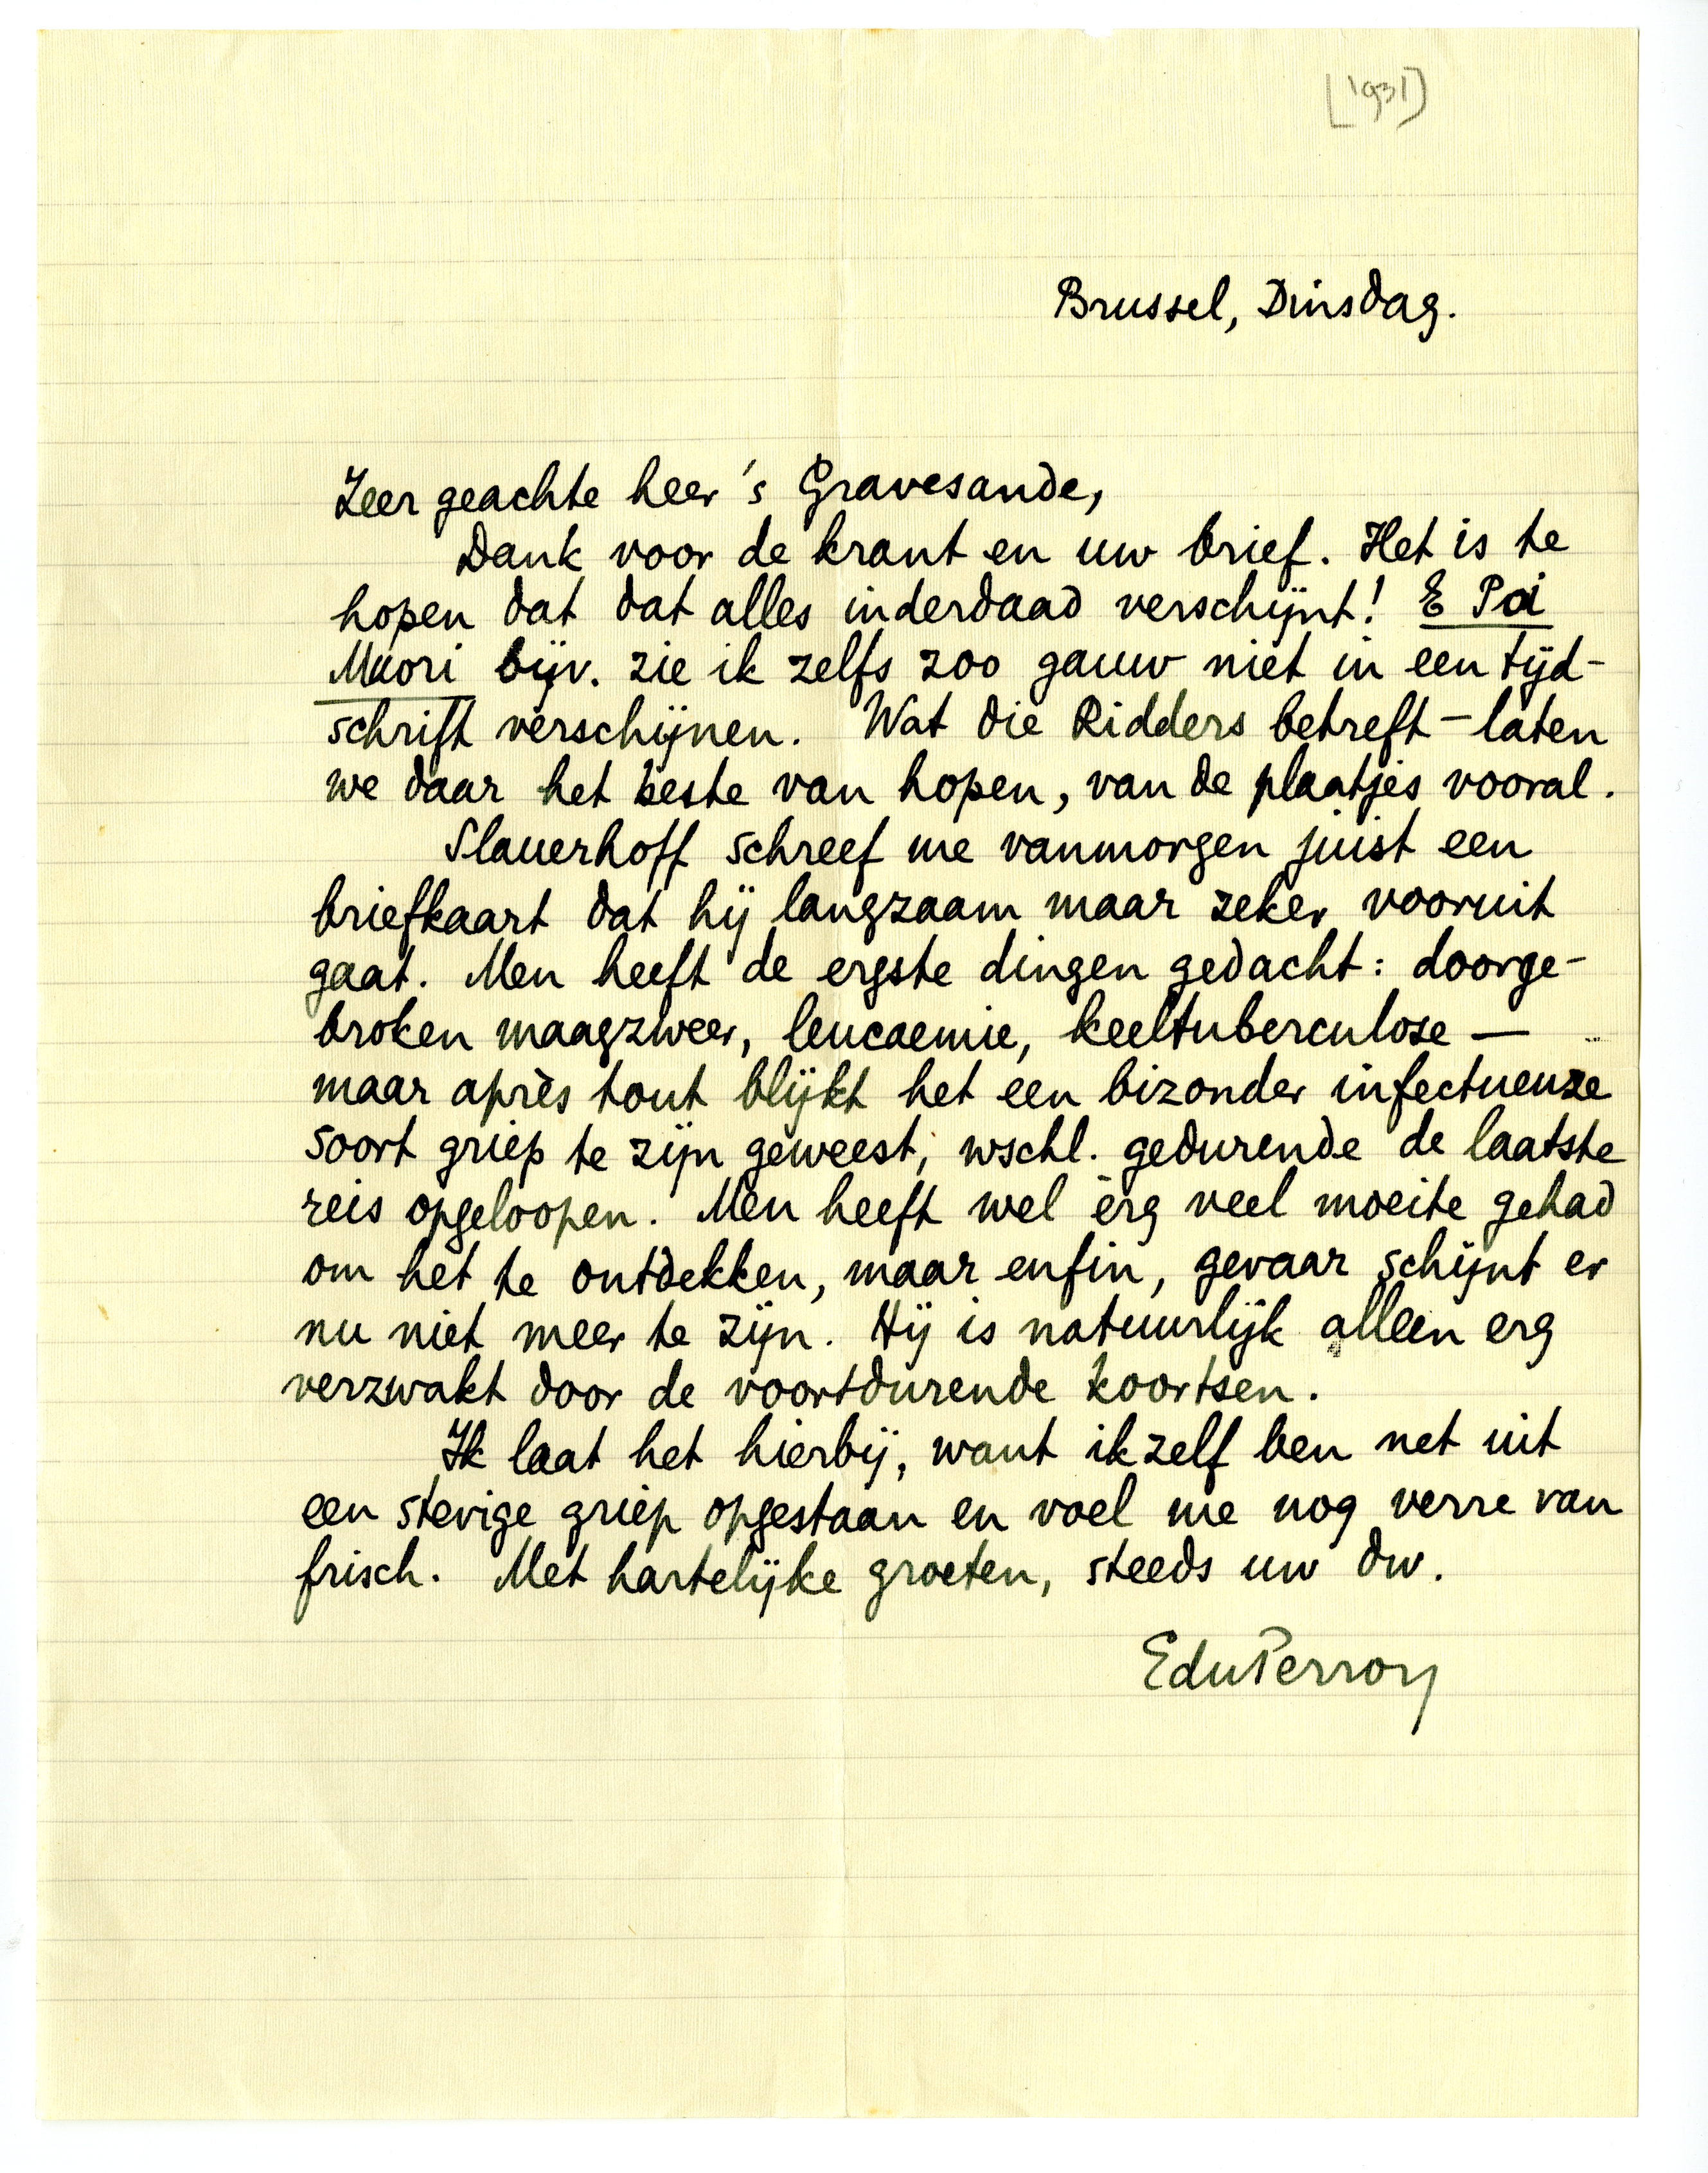 [1931]
Brussel, Dinsdag.
Zeer geachte heer 's Gravesande,
Dank voor de krant en uw brief. Het is te
hopen dat dat alles inderdaad verschijnt! E Poi
Muori bijv. zie ik zelfs zoo gauw niet in een tijd-
schrift verschijnen. Wat die Ridders betreft – laten
we daar het beste van hopen, van de plaatjes vooral.
Slauerhoff schreef me vanmorgen juist een
briefkaart dat hij langzaam maar zeker vooruit
gaat. Men heeft de ergste dingen gedacht: doorge-
broken maagzweer, leucaemie, keeltuberculose —
maar après tout blijkt het een bizonder infectueuze
soort griep te zijn geweest, wschl. gedurende de laatste
reis opgeloopen. Men heeft wel èrg veel moeite gehad
om het te ontdekken, maar enfin, gevaar schijnt er
nu niet meer te zijn. Hij is natuurlijk alleen erg
verzwakt door de voortdurende koortsen.
Ik laat het hierbij, want ikzelf ben net uit
een stevige griep opgestaan en voel me nog verre van
frisch. Met hartelijke groeten, steeds uw dw.
EduPerron